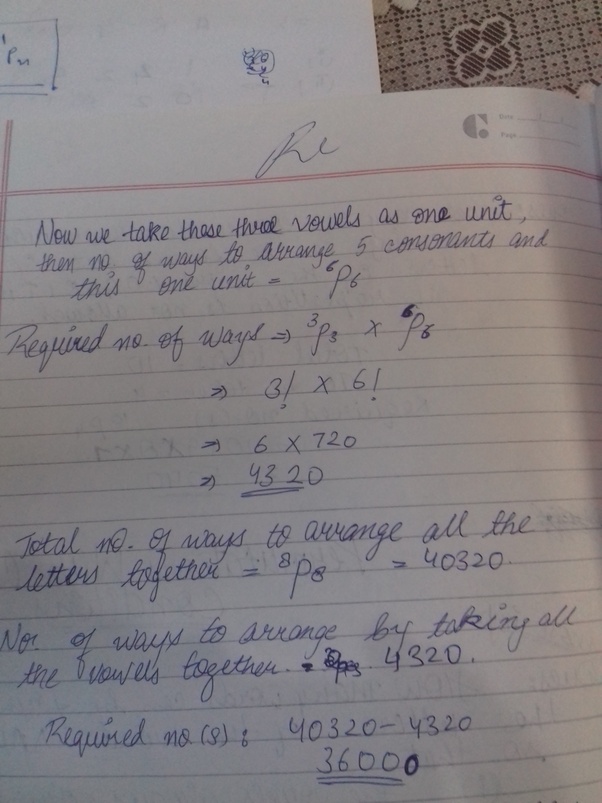 ⁿPₙ
Date
Page
Now we take those three vowels as one unit,
then no. of ways to arrange 5 consonants and
this one unit = ⁶P₆
Required no. of ways => ³P₃ × ⁶P₆
=> 3! × 6!
=> 6 × 720
=> 4320
Total no. of ways to arrange all the
letters together = ⁸P₈ = 40320.
No. of ways to arrange by taking all
the vowels together = 4320.
Required no.(s): 40320 - 4320
36000